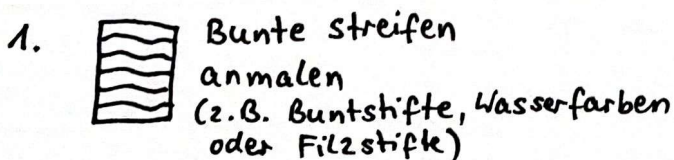 1. Bunte streifen
anmalen
(z.B. Buntstifte, Wasserfarben
oder Filzstifte)